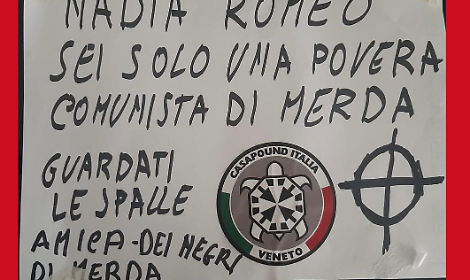 NADIA ROMEO
SEI SOLO UNA POVERA
COMUNISTA DI MERDA
GUARDATI
LE SPALLE
AMICA-DEI NEGRI
DI MERDA
CASAPOUND ITALIA
VENETO